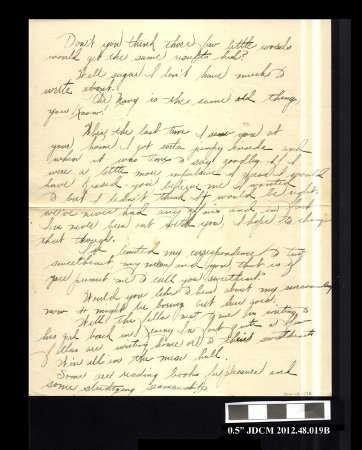 Don't you think those few little words
would get the same results huh?
Well sugar I don't have much to
write about.
The Navy is the same old thing,
you know!
When the last time I saw you at
your home I got sorta jumpy inside and
when it was time to say goodby if I
were a little more impulsive I guess I would
have kissed you believe me I wanted
to but I didn't think it would be right.
we've never had any and in fact
I've never been out with you. I hope to change
that though.
I've limited my correspondence to two
sweetheart my mom and you that is if
you permit me to call you sweetheart.
Would you like to hear about my surroundings
now it might be boring but here goes.
Well this fella next to me is writing to
his girl back in in fact quite a few
fellas are writing home or to their sweethearts
We're all in the mess hall.
Some are reading books for pleasure and
some studying seamanship
0.5" JDCM 2012.48.019B